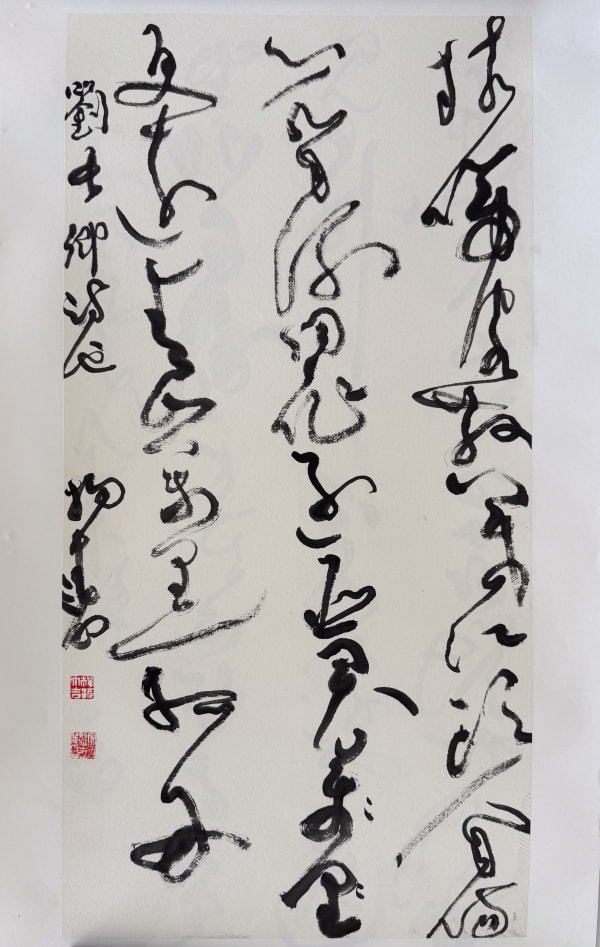 猿啼客散暮江頭人自傷
心水自流同作逐臣君萬里
更遠青山萬里一孤舟
劉長卿詩